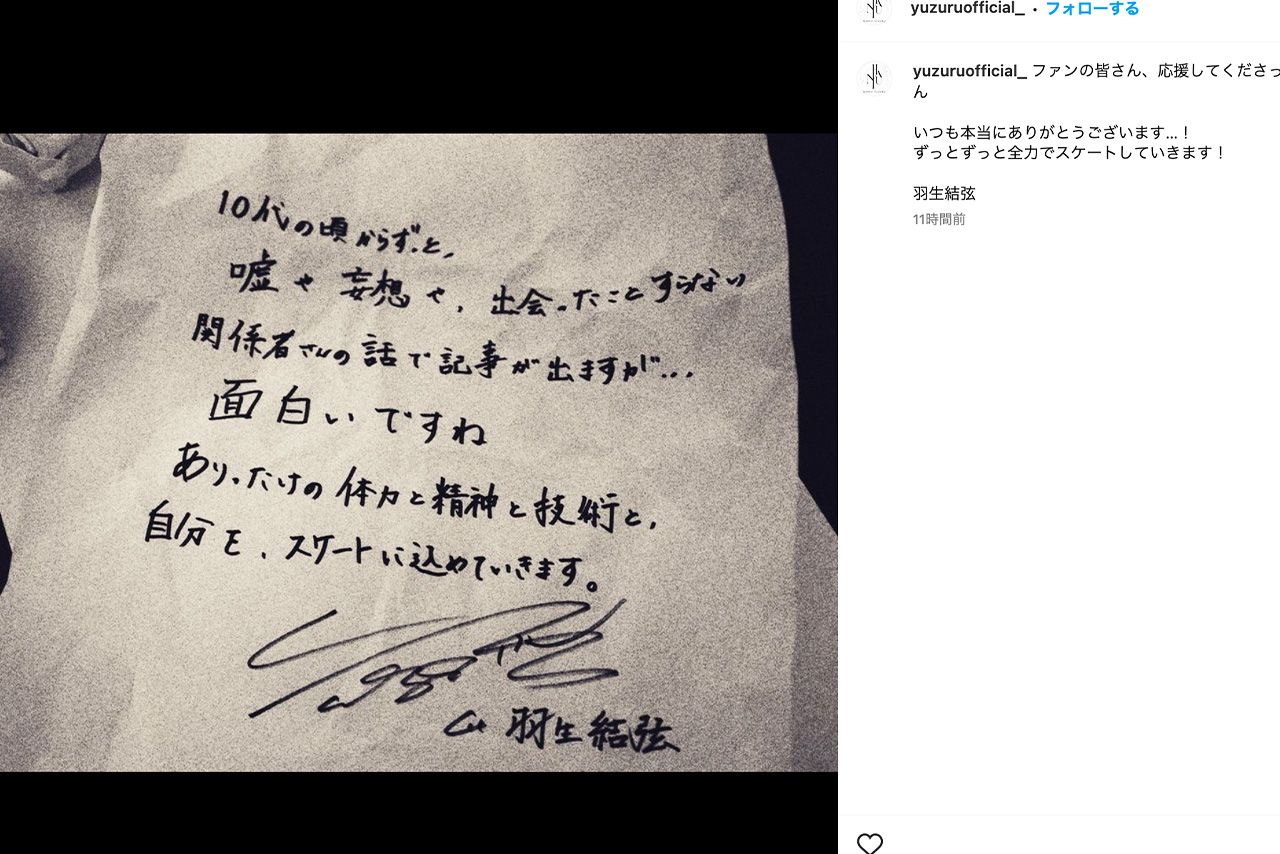 10代の頃からずっと、
嘘や妄想や、出会ったことすらない
関係者さんの話で記事が出ますが...
面白いですね
ありったけの体力と精神と技術と、
自分を、スケートに込めていきます。
羽生結弦
yuzuruofficial_ • フォローする
yuzuruofficial_ ファンの皆さん、応援してくださっ
ん
いつも本当にありがとうございます...！
ずっとずっと全力でスケートしていきます！
羽生結弦
11時間前